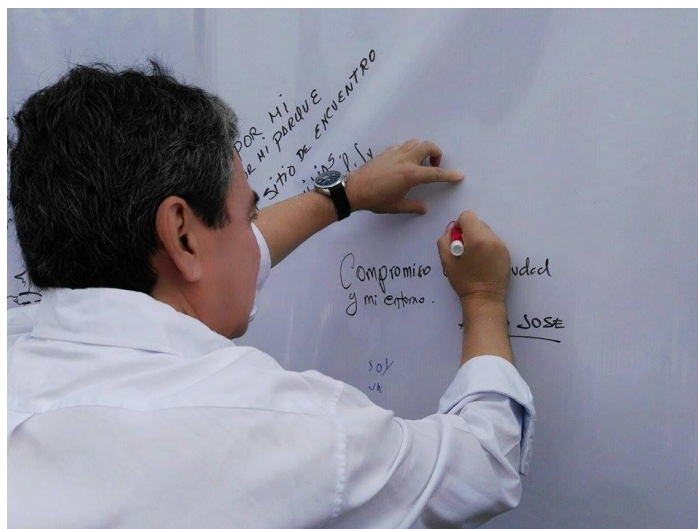 POR MI
MI PARQUE
SITIO DE ENCUENTRO
Compromiso
y mi entorno.
JOSE
SOY